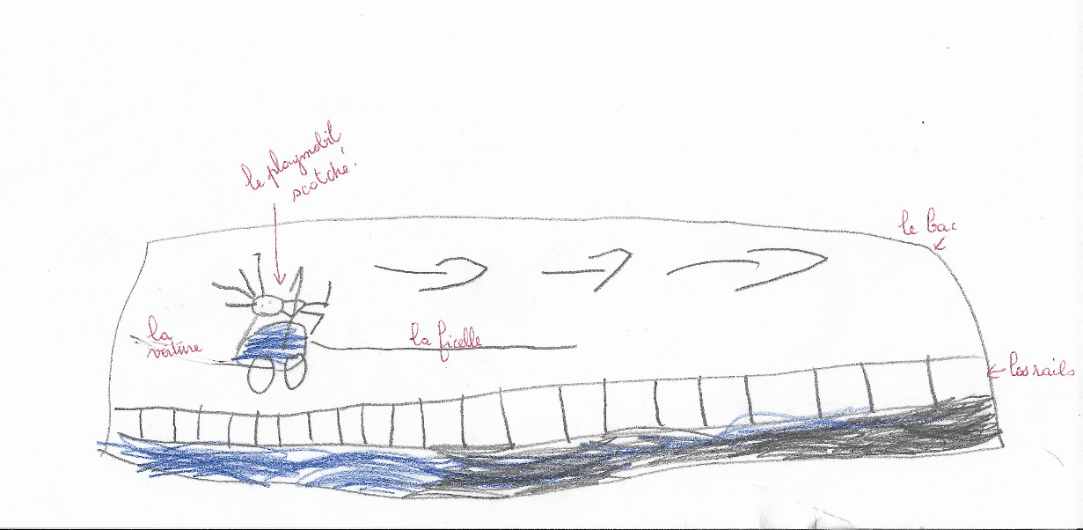 le playmobil
scotché.
le bac
la
voiture
la ficelle
les rails